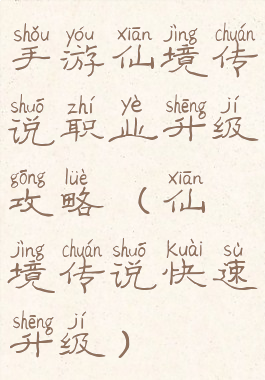 shǒu yóu xiān jìng chuán
手游仙境传
shuō zhí yè shēng jí
说职业升级
gōng lüè xiān
攻略（仙
jìng chuán shuō kuài sù
境传说快速
shēng jí
升级）